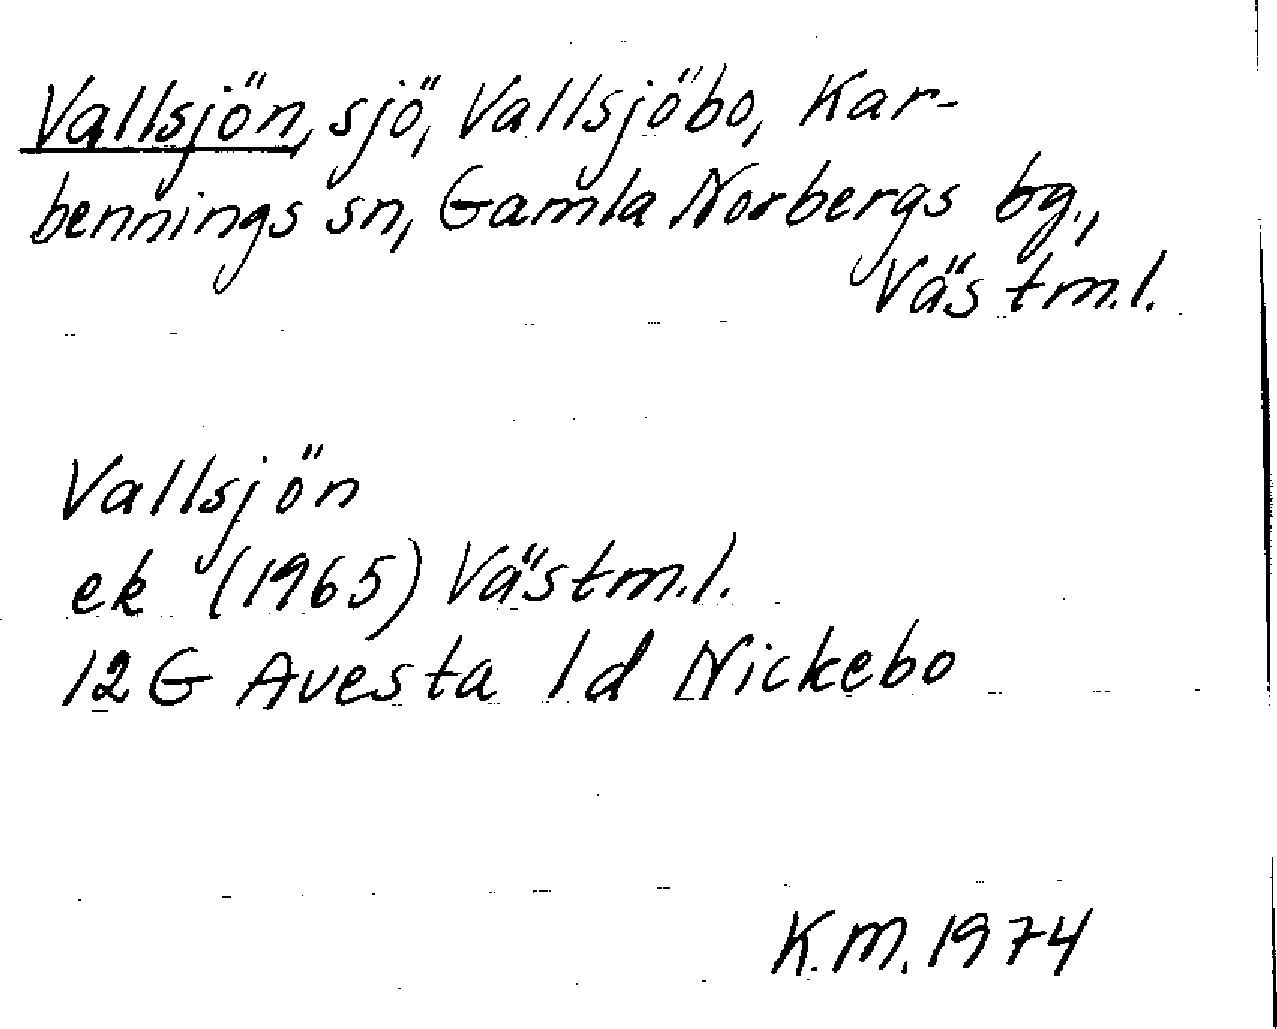 Vallsjön, sjö, Vallsjöbo, Kar-
bennings sn, Gamla Norbergs bg.,
Västm.l.
Vallsjön
ek (1965) Västm.l.
12G Avesta 1d Nickebo
K.M. 1974